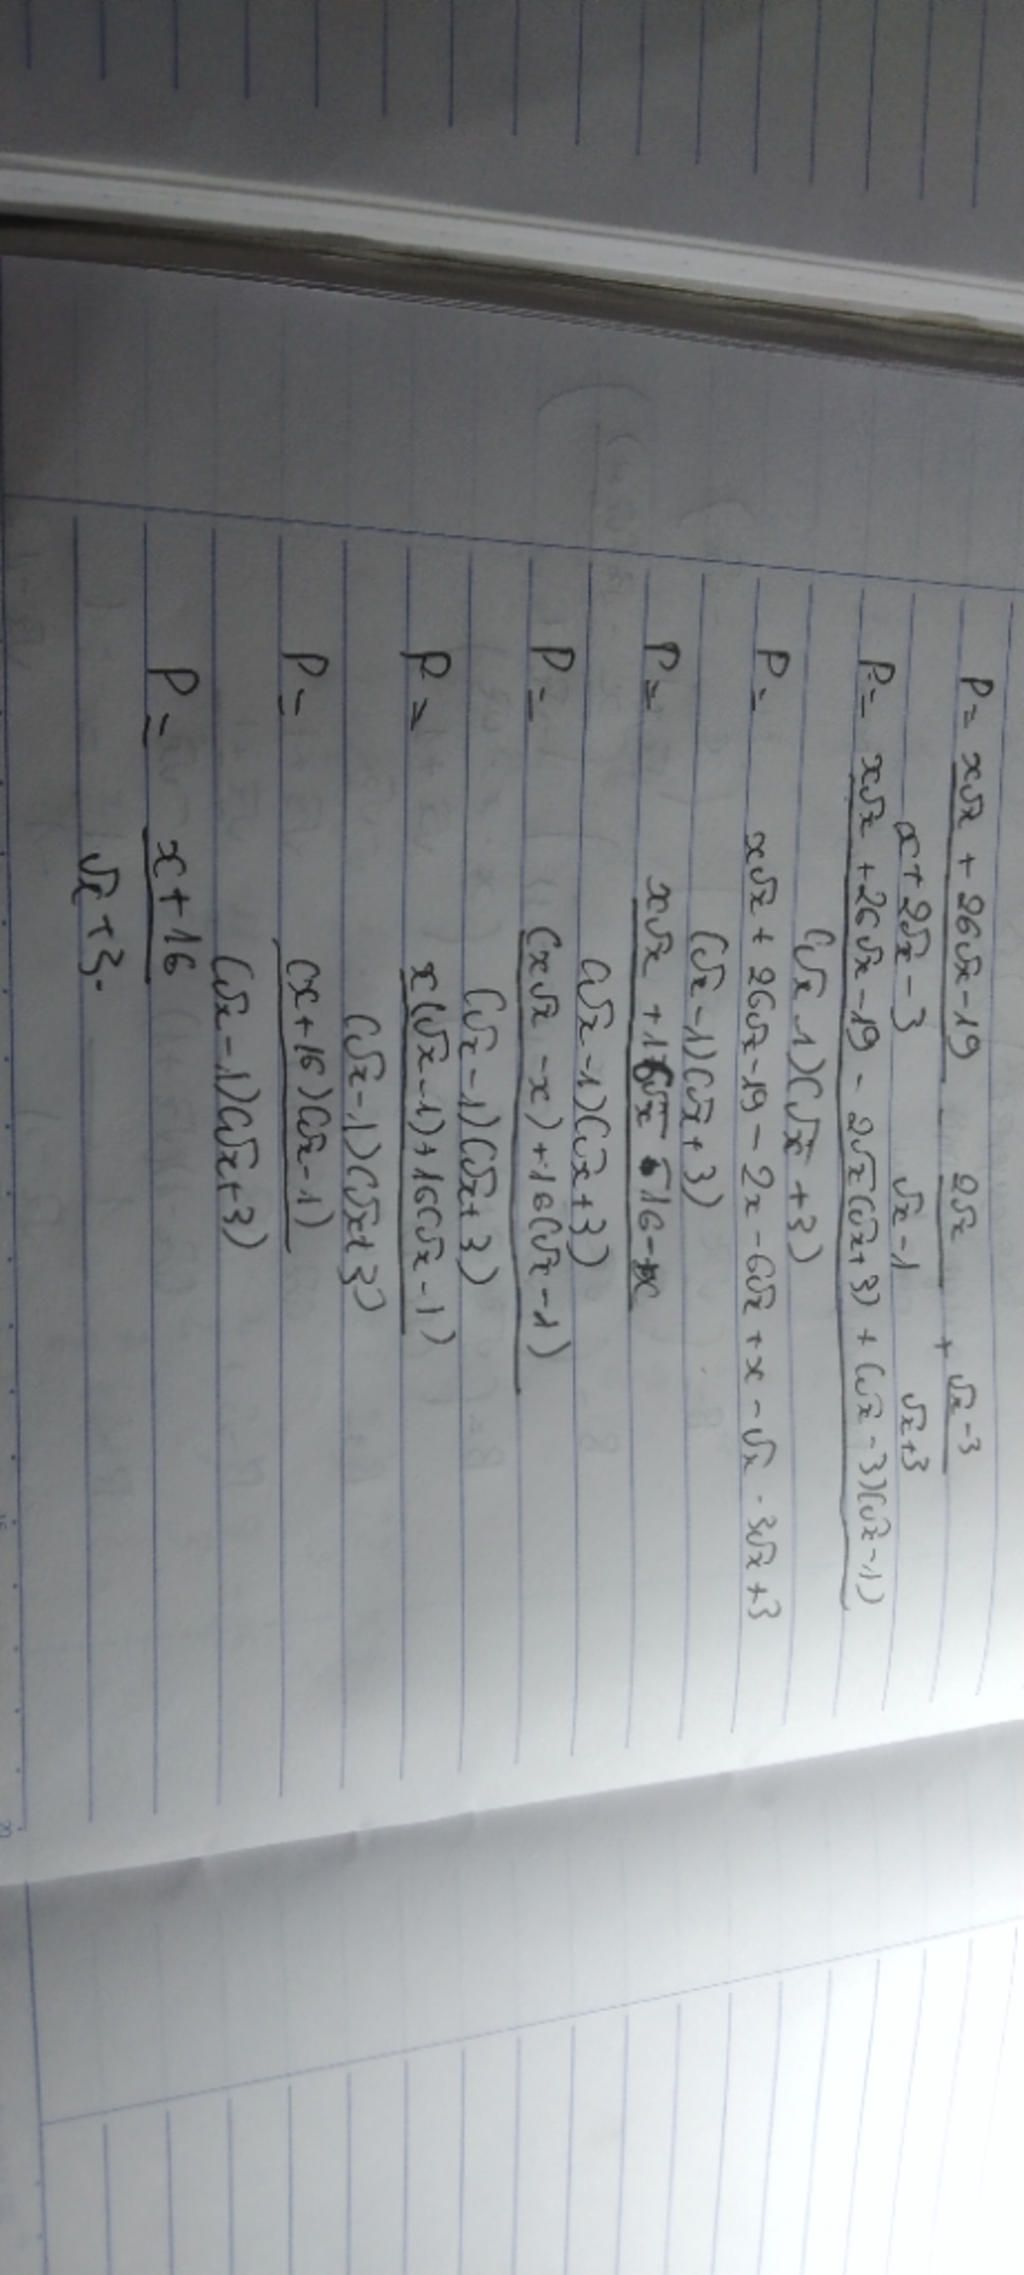 P = x√x + 26√x - 19 - 2√x + √x - 3
x + 2√x - 3 √x - 1 √x + 3
P = x√x + 26√x - 19 - 2√x(√x + 3) + (√x - 3)(√x - 1)
(√x - 1)(√x + 3)
P = x√x + 26√x - 19 - 2x - 6√x + x - √x - 3√x + 3
(√x - 1)(√x + 3)
P = x√x + 16√x - 16 - x
(√x - 1)(√x + 3)
P = (x√x - x) + 16(√x - 1)
(√x - 1)(√x + 3)
P = x(√x - 1) + 16(√x - 1)
(√x - 1)(√x + 3)
P = (x + 16)(√x - 1)
(√x - 1)(√x + 3)
P = x + 16
√x + 3.